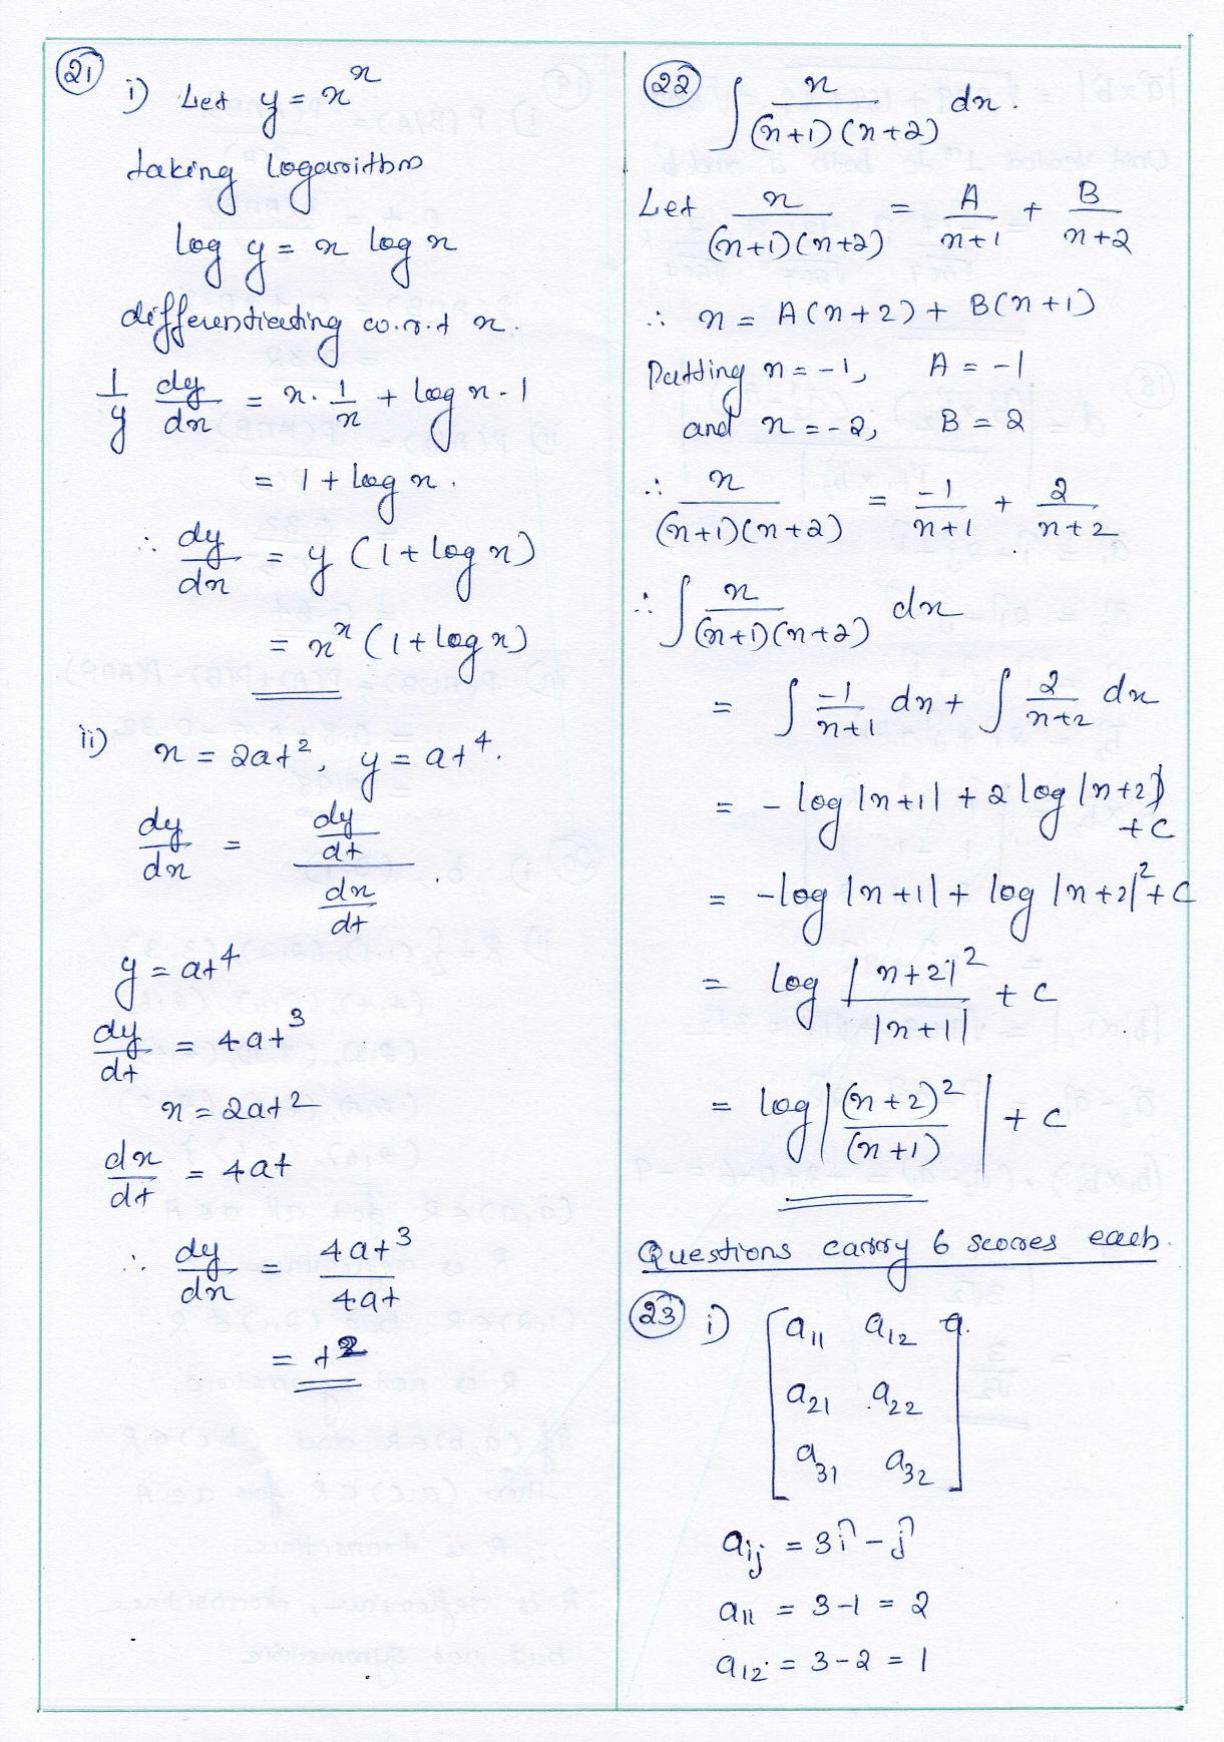 21
i) Let y = x^x
taking logarithm
log y = x log x
differentiating w.r.t x.
1/y dy/dx = x · 1/x + log x · 1
= 1 + log x.
∴ dy/dx = y (1 + log x)
= x^x (1 + log x)
ii) x = 2at², y = at⁴.
dy/dx = (dy/dt)/(dx/dt).
y = at⁴
dy/dt = 4at³
x = 2at²
dx/dt = 4at
∴ dy/dx = 4at³/4at
= t²
22 ∫ x/((x+1)(x+2)) dx.
Let x/((x+1)(x+2)) = A/(x+1) + B/(x+2)
∴ x = A(x+2) + B(x+1)
Putting x = -1, A = -1
and x = -2, B = 2
∴ x/((x+1)(x+2)) = -1/(x+1) + 2/(x+2)
∴ ∫ x/((x+1)(x+2)) dx
= ∫ -1/(x+1) dx + ∫ 2/(x+2) dx
= - log |x+1| + 2 log |x+2|
+ C
= -log |x+1| + log |x+2|² + C
= log |x+2|²/|x+1| + C
= log |(x+2)²/(x+1)| + C
Questions carry 6 scores each.
23 i) [a₁₁ a₁₂
a₂₁ a₂₂
a₃₁ a₃₂]
aᵢⱼ = 3i - j
a₁₁ = 3-1 = 2
a₁₂ = 3-2 = 1